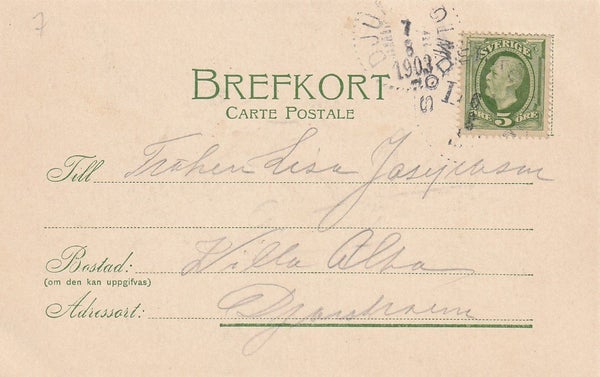 7
DJU
7
8
1903
SVERIGE
5
ÖRE ÖRE
BREFKORT
CARTE POSTALE
Till Fröken Lisa Josephson
Bostad: Villa Alba
(om den kan uppgifvas)
Adressort: Djursholm